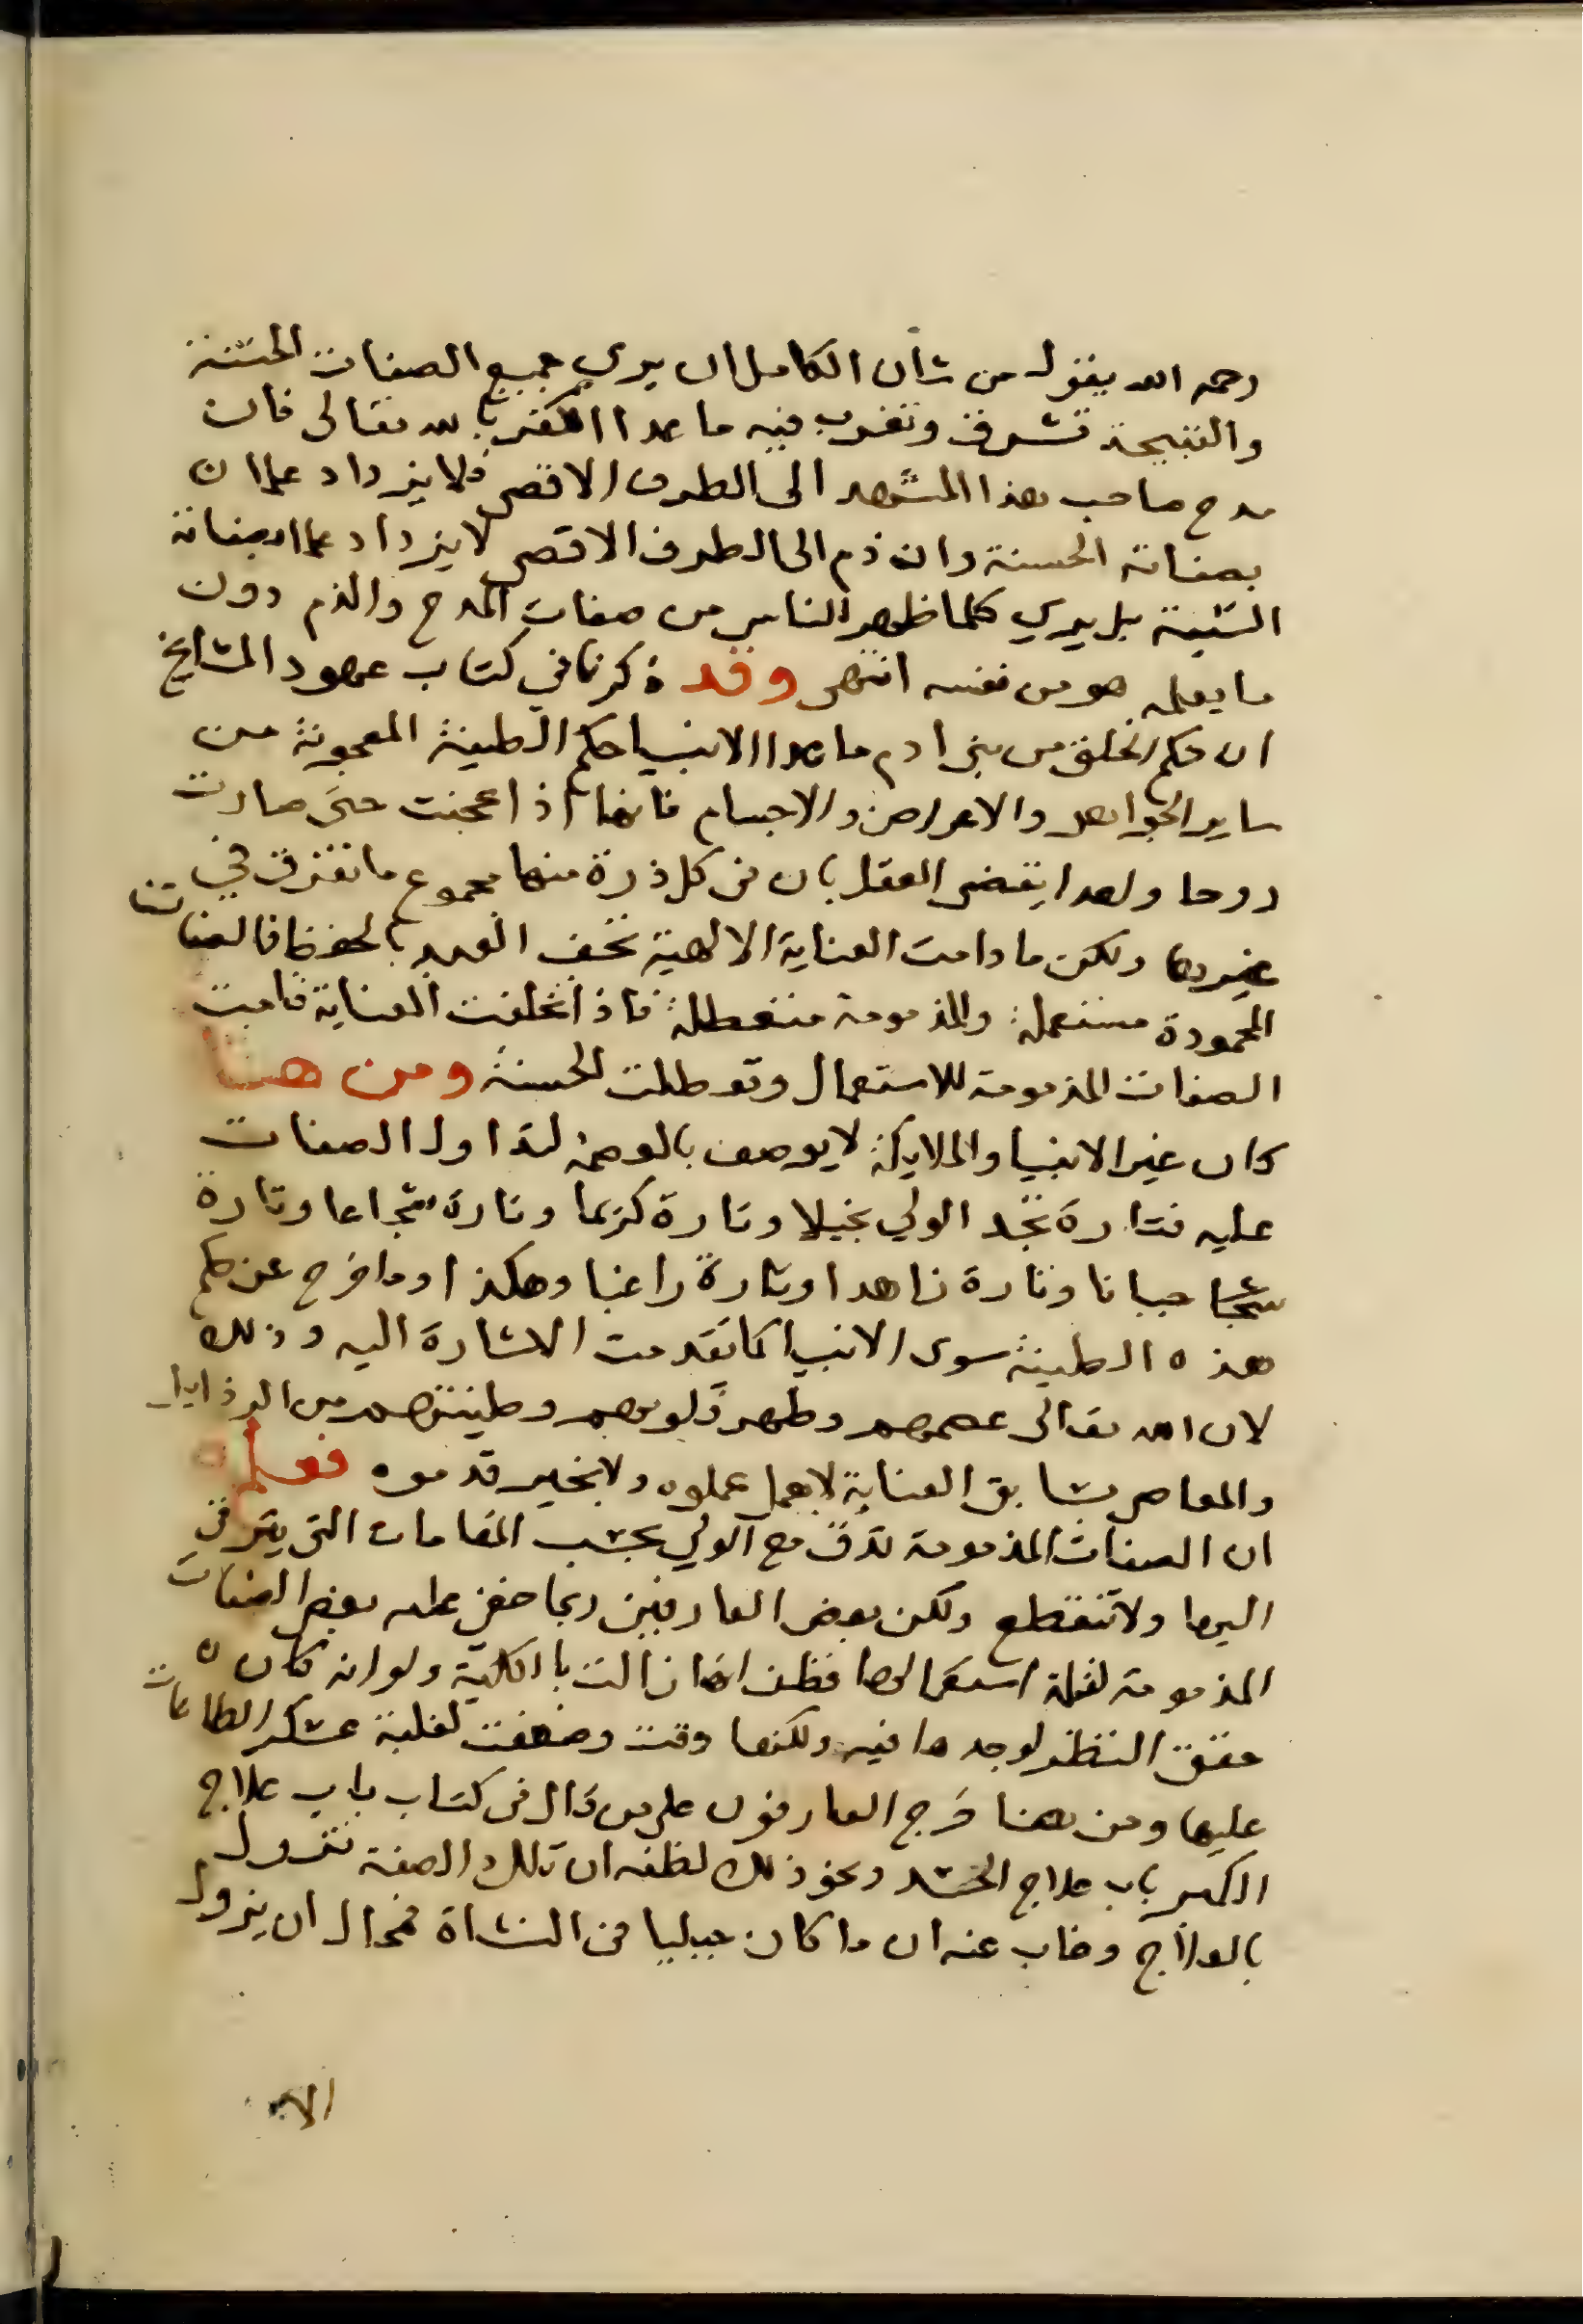 رحمه الله يقول من شأن الكامل ان يري جميع الصفات الحسنة
والقبيحة تشرق وتغرب فيه ما عدا الكفر بالله تعالى فان
مدح صاحب هذا المشهد الى الطرف الاقصى فلا يزداد علما ان
بصفاته الحسنة وان ذم الى الطرف الاقصى لا يزداد علما بصفاته
السيية بل يري كلما ظهر للناس من صفات المدح والذم دون
ما يعلمه هو من نفسه انتهى وقد ذكرنا في كتاب عهود المشايخ
ان حكم الخلق من بني ادم ما عدا الانبيا حكم الطينة المعجونة من
ساير الجواهر والاعراض والاجسام فانها اذا عجنت حتى صارت
روحا واحدا يقضي العقل بان في كل ذرة منها مجموع ما تفرق في
غيرها ولكن ما دامت العناية الالهية تحف العبد بالحفظ فالصفات
المحمودة مستعملة والمذمومة متعطلة فاذا تخلفت العناية قامت
الصفات المذمومة للاستعمال وتعطلت الحسنة ومن هنا
كان غير الانبيا والملايكة لا يوصف بالعصمة لتداول الصفات
عليه فتارة تجد الولي بخيلا وتارة كريما وتارة شجاعا وتارة
جبانا وتارة زاهدا وتارة راغبا وهكذا وما خرج عن حكم
هذه الطينة سوى الانبيا كما تقدمت الاشارة اليه وذلك
لان الله تعالى عصمهم وطهر قلوبهم وطينتهم من الرذايل
والمعاصي بسابق العناية لا بعمل عملوه ولا بخير قدموه فعلم
ان الصفات المذمومة تدق مع الولي بحسب المقامات التي يترقى
اليها ولا تنقطع ولكن بعض العارفين ربما خفي عليه بعض الصفات
المذمومة لقلة استعمالها فظن انها زالت بالكلية ولو انه كان
حقق النظر لوجدها فيه ولكنها دقت وضعفت لغلبة عسكر الطاعات
عليها ومن هنا خرج العارفون على من قال في كتاب باب علاج
الكبر باب علاج الحسد ونحو ذلك لظنه ان تلك الصفة تزول
بالعلاج وغاب عنه ان ما كان جبليا في النشاة فمحال ان يزول